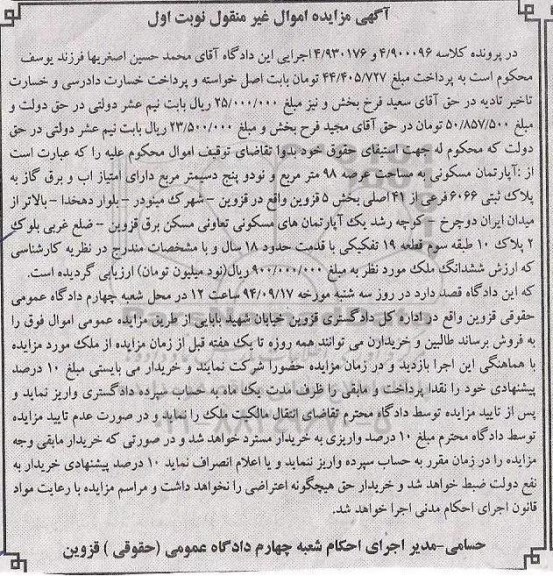 آگهی مزایده اموال غیر منقول نوبت اول
در پرونده کلاسه ۴/۹۰۰۰۹۶ و ۴/۹۳۰۱۷۶ اجرایی این دادگاه آقای محمد حسین اصغریها فرزند یوسف
محکوم است به پرداخت مبلغ ۴۴/۴۰۵/۷۲۷ تومان بابت اصل خواسته و پرداخت خسارت دادرسی و خسارت
تاخیر تادیه در حق آقای سعید فرخ بخش و نیز مبلغ ۲۵/۰۰۰/۰۰۰ ریال بابت نیم عشر دولتی در حق دولت و
مبلغ ۵۰/۸۵۷/۵۰۰ تومان در حق آقای مجید فرح بخش و مبلغ ۲۳/۵۰۰/۰۰۰ ریال بابت نیم عشر دولتی در حق
دولت که محکوم له جهت استیفای حقوق خود بدوا تقاضای توقیف اموال محکوم علیه را که عبارت است
از :آپارتمان مسکونی به مساحت عرصه ۹۸ متر مربع و نودو پنج دسیمتر مربع دارای امتیاز اب و برق گاز به
پلاک ثبتی ۶۰۶۶ فرعی از ۴۱ اصلی بخش ۵ قزوین واقع در قزوین – شهرک مینودر – بلوار دهخدا – بالاتر از
میدان ایران دوچرخ – کوچه رشد یک آپارتمان های مسکونی تعاونی مسکن برق قزوین – ضلع غربی بلوک
۲ پلاک ۱۰ طبقه سوم قطعه ۱۹ تفکیکی با قدمت حدود ۱۸ سال و با مشخصات مندرج در نظریه کارشناسی
که ارزش ششدانگ ملک مورد نظر به مبلغ ۹۰۰/۰۰۰/۰۰۰ ریال(نود میلیون تومان) ارزیابی گردیده است.
که این دادگاه قصد دارد در روز سه شنبه مورخه ۹۴/۰۹/۱۷ ساعت ۱۲ در محل شعبه چهارم دادگاه عمومی
حقوقی قزوین واقع در اداره کل دادگستری قزوین خیابان شهید بابایی از طریق مزایده عمومی اموال فوق را
به فروش برساند طالبین و خریدارن می توانند همه روزه تا یک هفته قبل از زمان مزایده از ملک مورد مزایده
با هماهنگی این اجرا بازدید و در زمان مزایده حضورا شرکت نمایند و خریدار می بایستی مبلغ ۱۰ درصد
پیشنهادی خود را نقدا پرداخت و مابقی را ظرف مدت یک ماه به حساب سپرده دادگستری واریز نماید و
پس از تایید مزایده توسط دادگاه محترم تقاضای انتقال مالکیت ملک را نماید و در صورت عدم تایید مزایده
توسط دادگاه محترم مبلغ ۱۰ درصد واریزی به خریدار مسترد خواهد شد و در صورتی که خریدار مابقی وجه
مزایده را در زمان مقرر به حساب سپرده واریز ننماید و یا اعلام انصراف نماید ۱۰ درصد پیشنهادی خریدار به
نفع دولت ضبط خواهد شد و خریدار حق هیچگونه اعتراضی را نخواهد داشت و مراسم مزایده با رعایت مواد
قانون اجرای احکام مدنی اجرا خواهد شد.
حسامی-مدیر اجرای احکام شعبه چهارم دادگاه عمومی (حقوقی ) قزوین